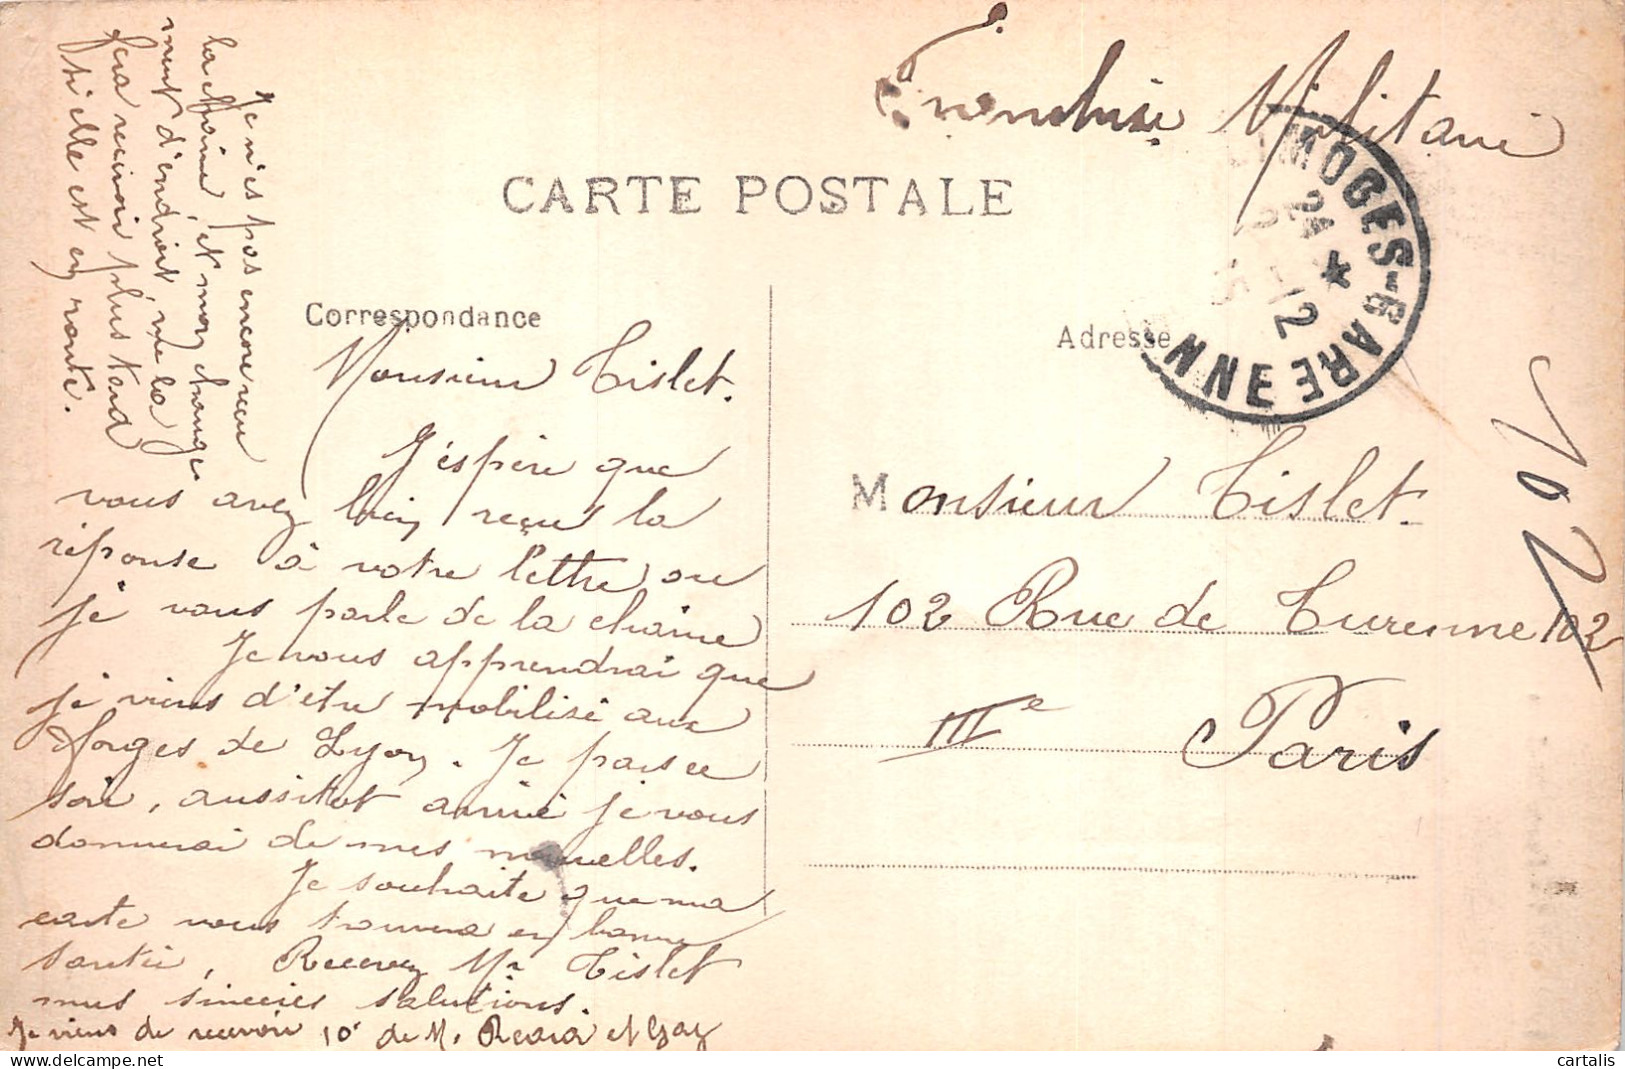 Franchise Militaire
CARTE POSTALE
LIMOGES-GARE
Vienne
24
2-12
15
Correspondance
Adresse
Monsieur Tislet.
J'espère que
vous avez bien reçus la
réponse à votre lettre ou
je vous parle de la chaine
Je vous apprendrai que
je viens d'être mobilisé aux
Forges de Lyon. Je pars ce
soir, aussitot arrivé je vous
donnerai de mes nouvelles.
Je souhaite que ma
carte vous trouvera en bonne
santée, Recevez Mr Tislet
mes sincères salutions.
Je viens de recevoir 10f de M. et
Je n'es pas encore reçu
la chaine, et mon change-
ment d'endroit, me la
fera recevoir plus tard
si elle est en route.
Monsieur Tislet.
102 Rue de Turenne 102
IIIe Paris
102
cartalis